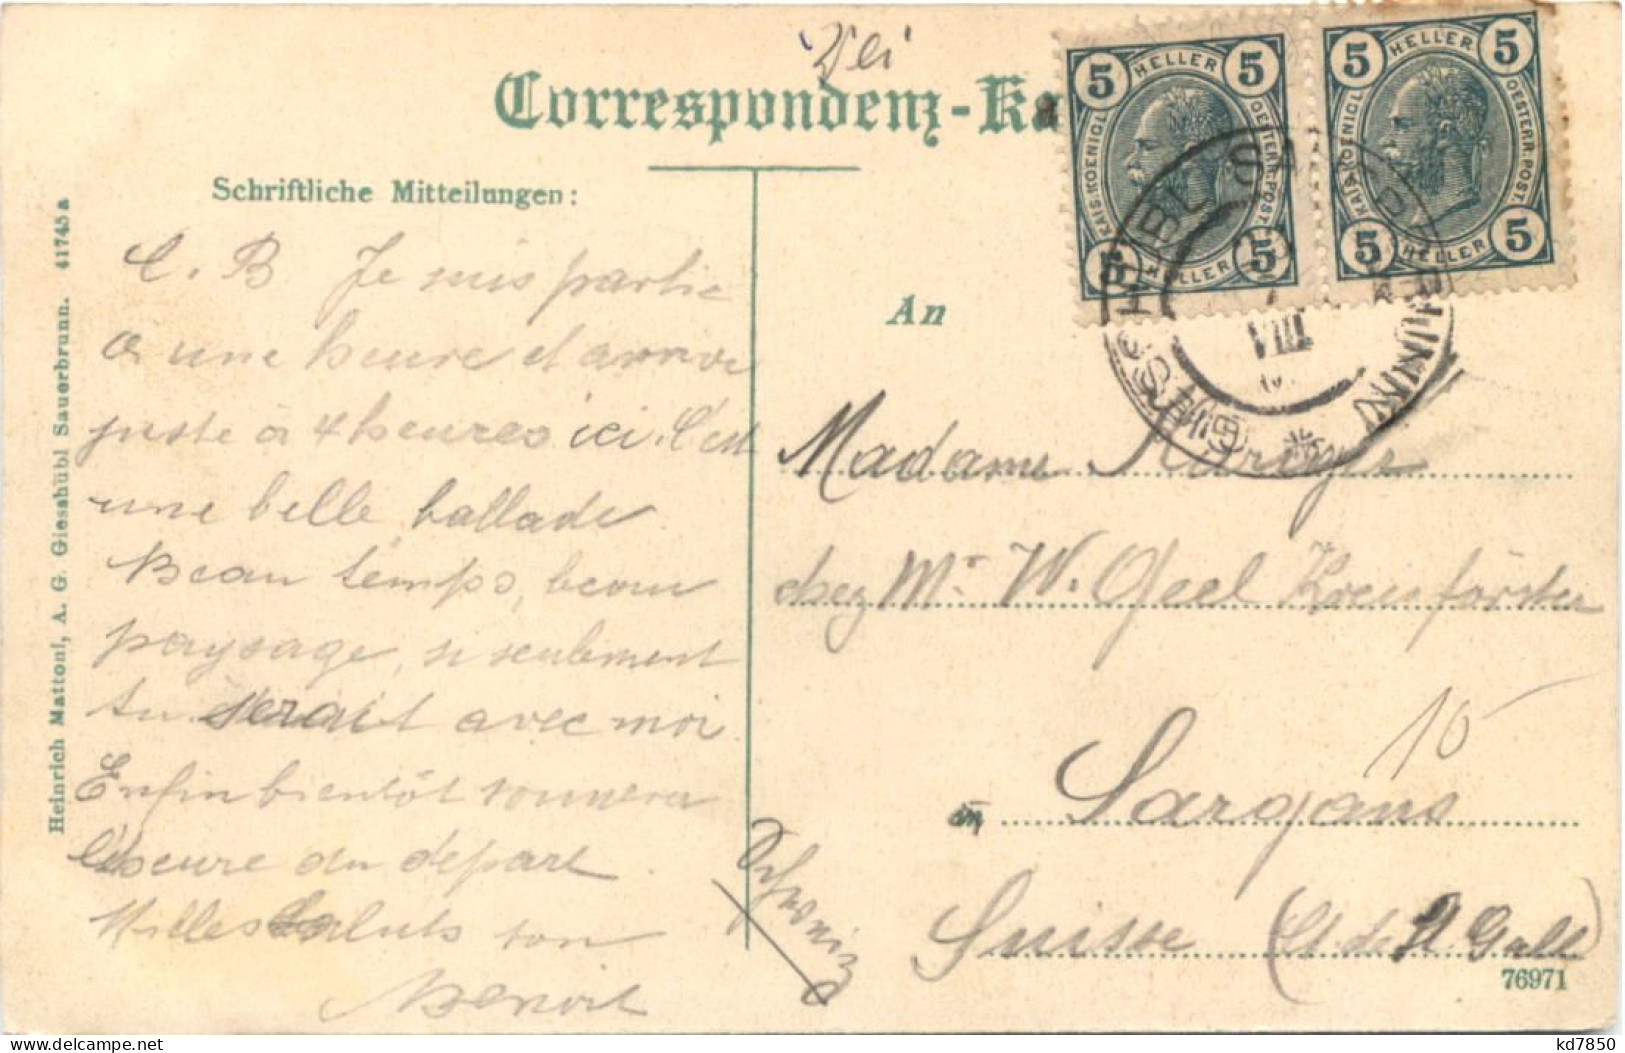 Vei
Correspondenz-Ka
Schriftliche Mitteilungen:
C. B Je suis partie
a une heure et arrive
juste à 4 heures ici. C'est
une belle ballade
Beau temps, beau
paysage, si seulement
tu serait avec moi
Enfin bientôt sonnera
l'heure du départ
Milles saluts ton
Benoit
Heinrich Mattoni, A. G. Giesshübl Sauerbrunn. 41745 a
5 HELLER 5
KAIS. KOENIGL. OESTERR. POST
5 HELLER 5
5 HELLER 5
KAIS. KOENIGL. OESTERR. POST
5 HELLER 5
GIESSHÜBL SAUERBRUNN
VIII
An
Madame
chez Mr W. Geel
in Sargans
10
Suisse (Ct. de St Gall)
Schweiz
76971
delcampe.net
kd7850